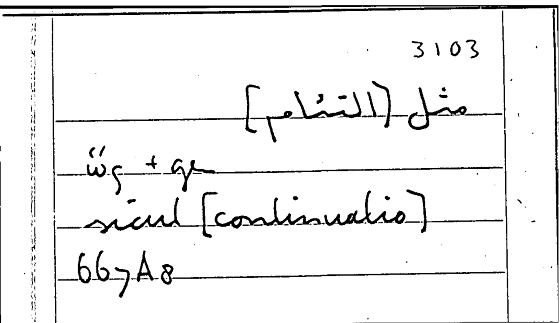 3103
مثل [التئام]
ὥς + ge
sicut [continuatio]
667A8